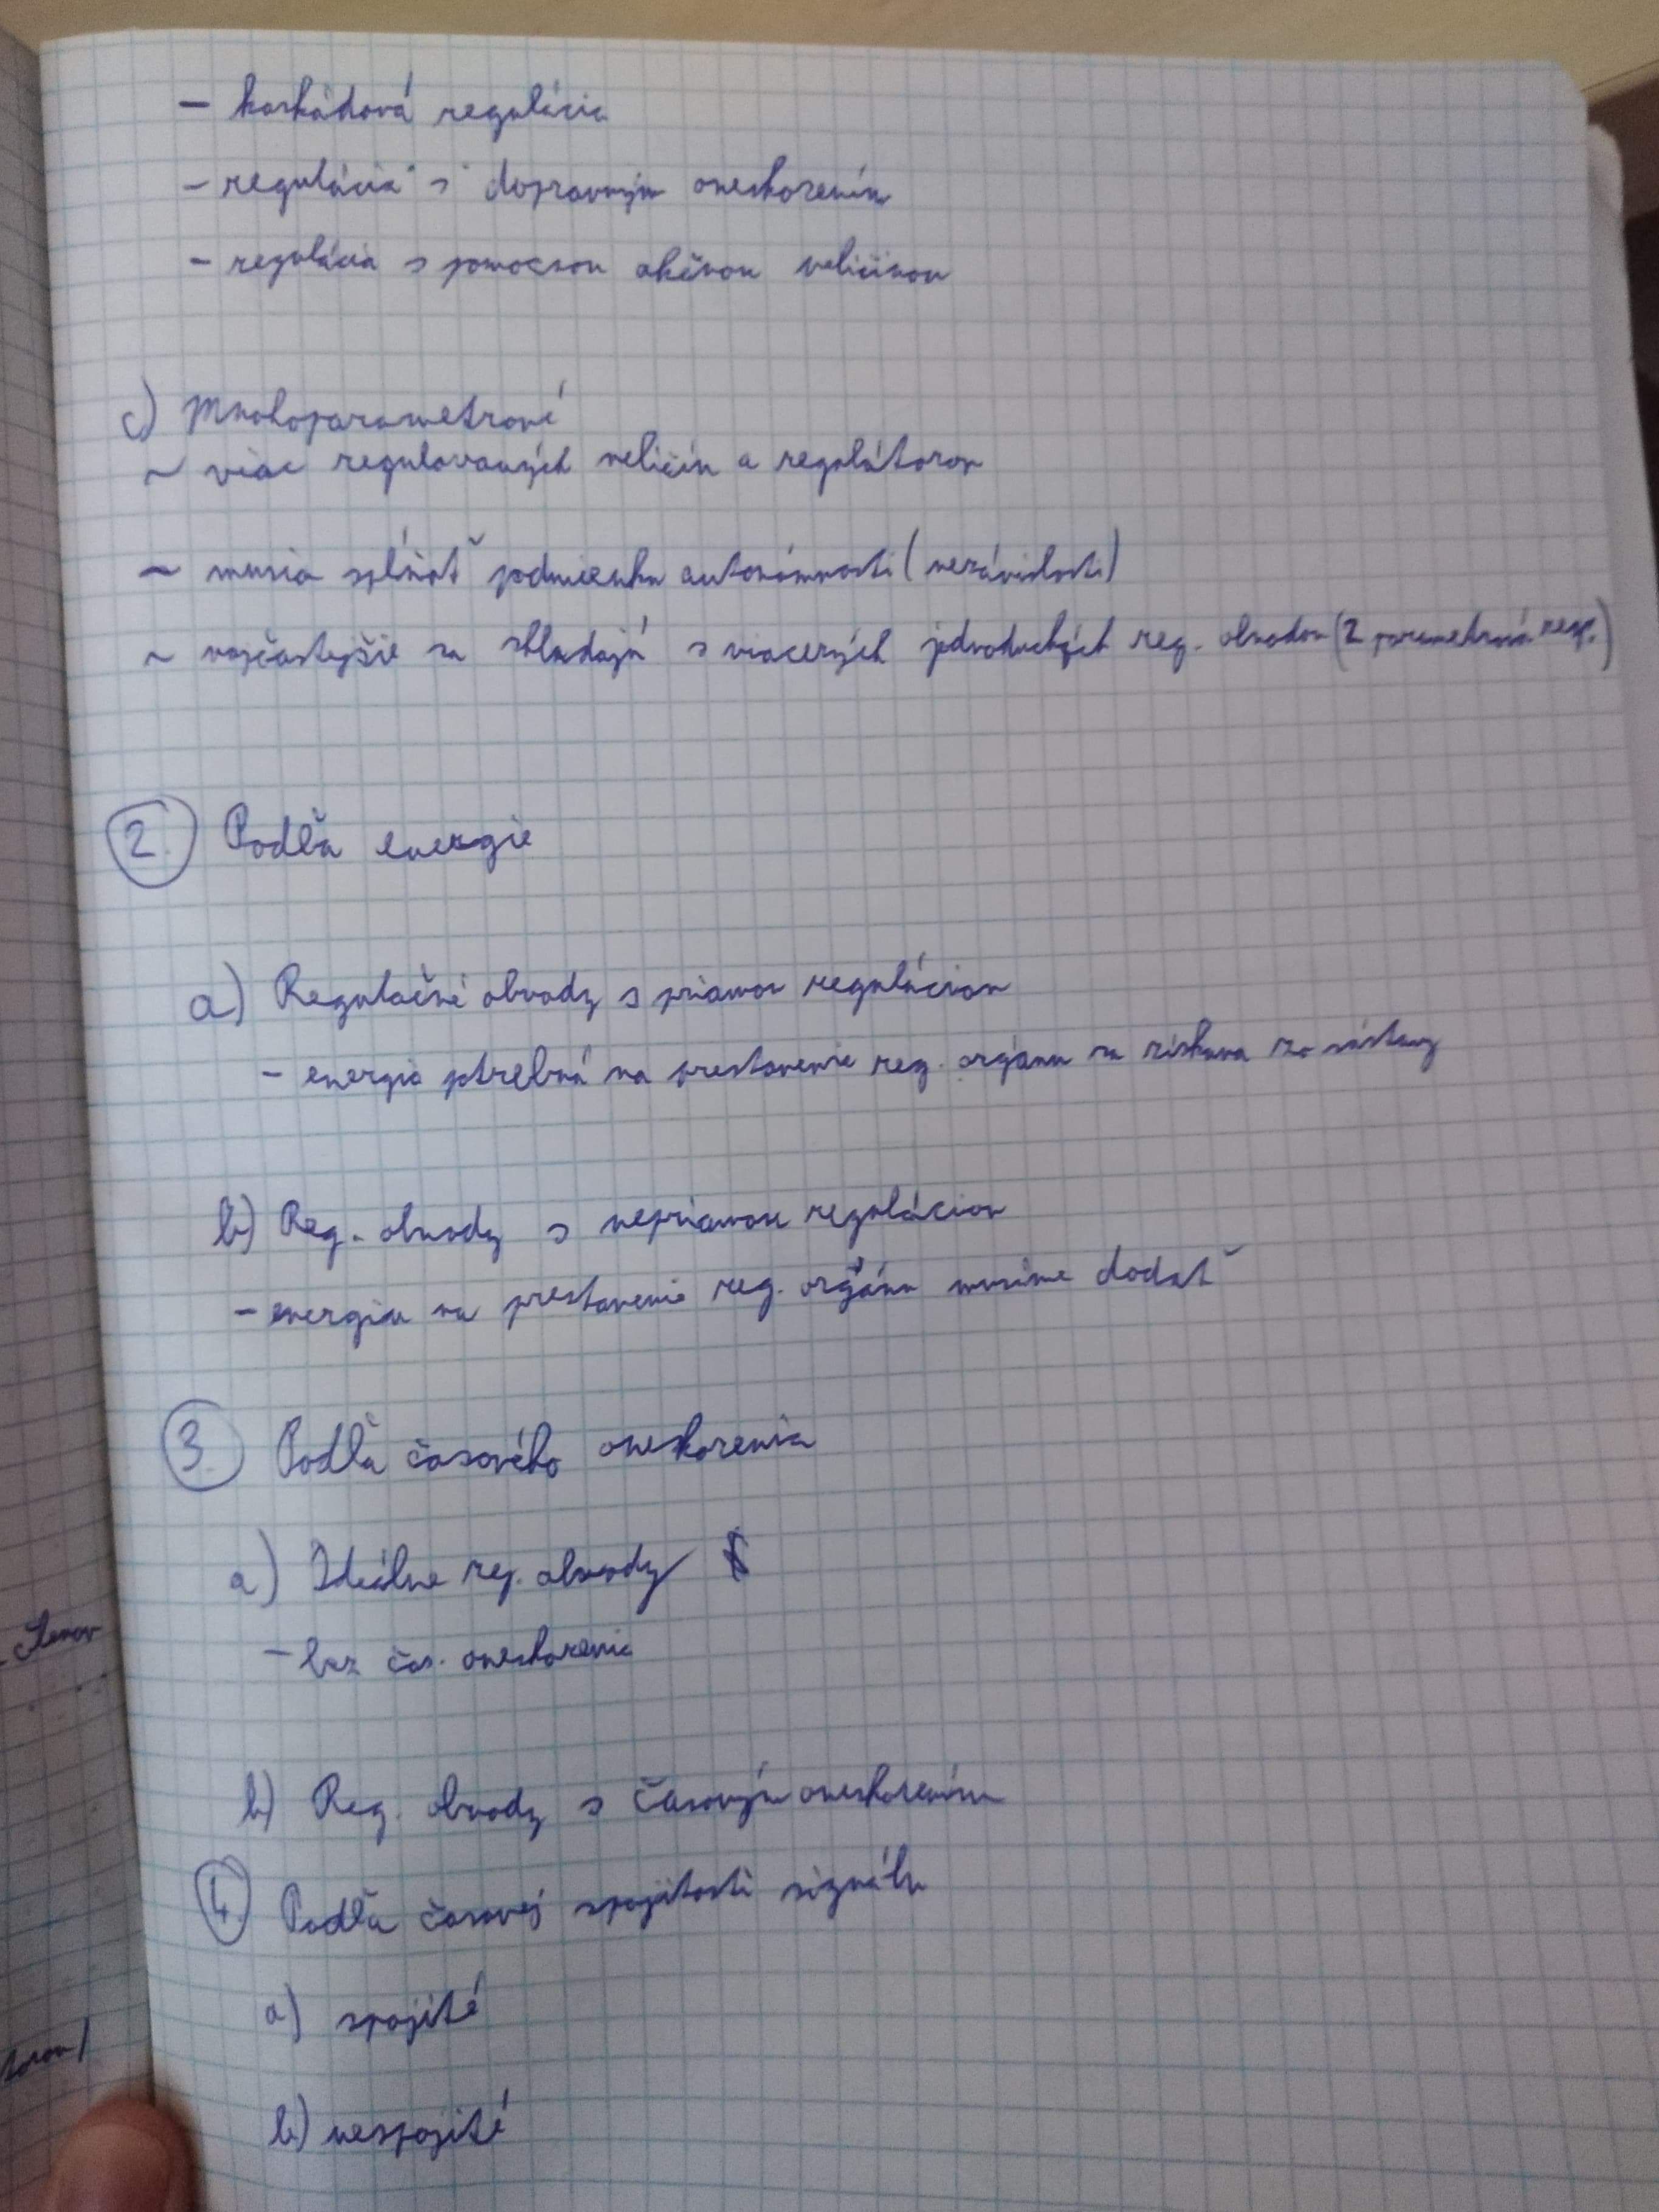 - kaskádová regulácia
- regulácia s dopravným oneskorením
- regulácia s pomocnou akčnou veličinou
c) Mnohoparametrové
- viac regulovaných veličín a regulátorov
- musia splňať podmienku autonómnosti (nezávislosti)
- najčastejšie sa skladajú s viacerých jednoduchých reg. obvodov (2 parametrová
2. Podľa energie
a) Regulačné obvody s priamou reguláciou
- energia potrebná na prestavenie reg. orgánu sa získava zo sústavy
b) Reg. obvody s nepriamou reguláciou
- energiu na prestavenie reg. orgánu musíme dodať
3. Podľa časového oneskorenia
a) Ideálne reg. obvody
- bez čas. oneskorenia
b) Reg. obvody s časovým oneskorením
4. Podľa časovej spojitosti signálu
a) spojité
b) nespojité